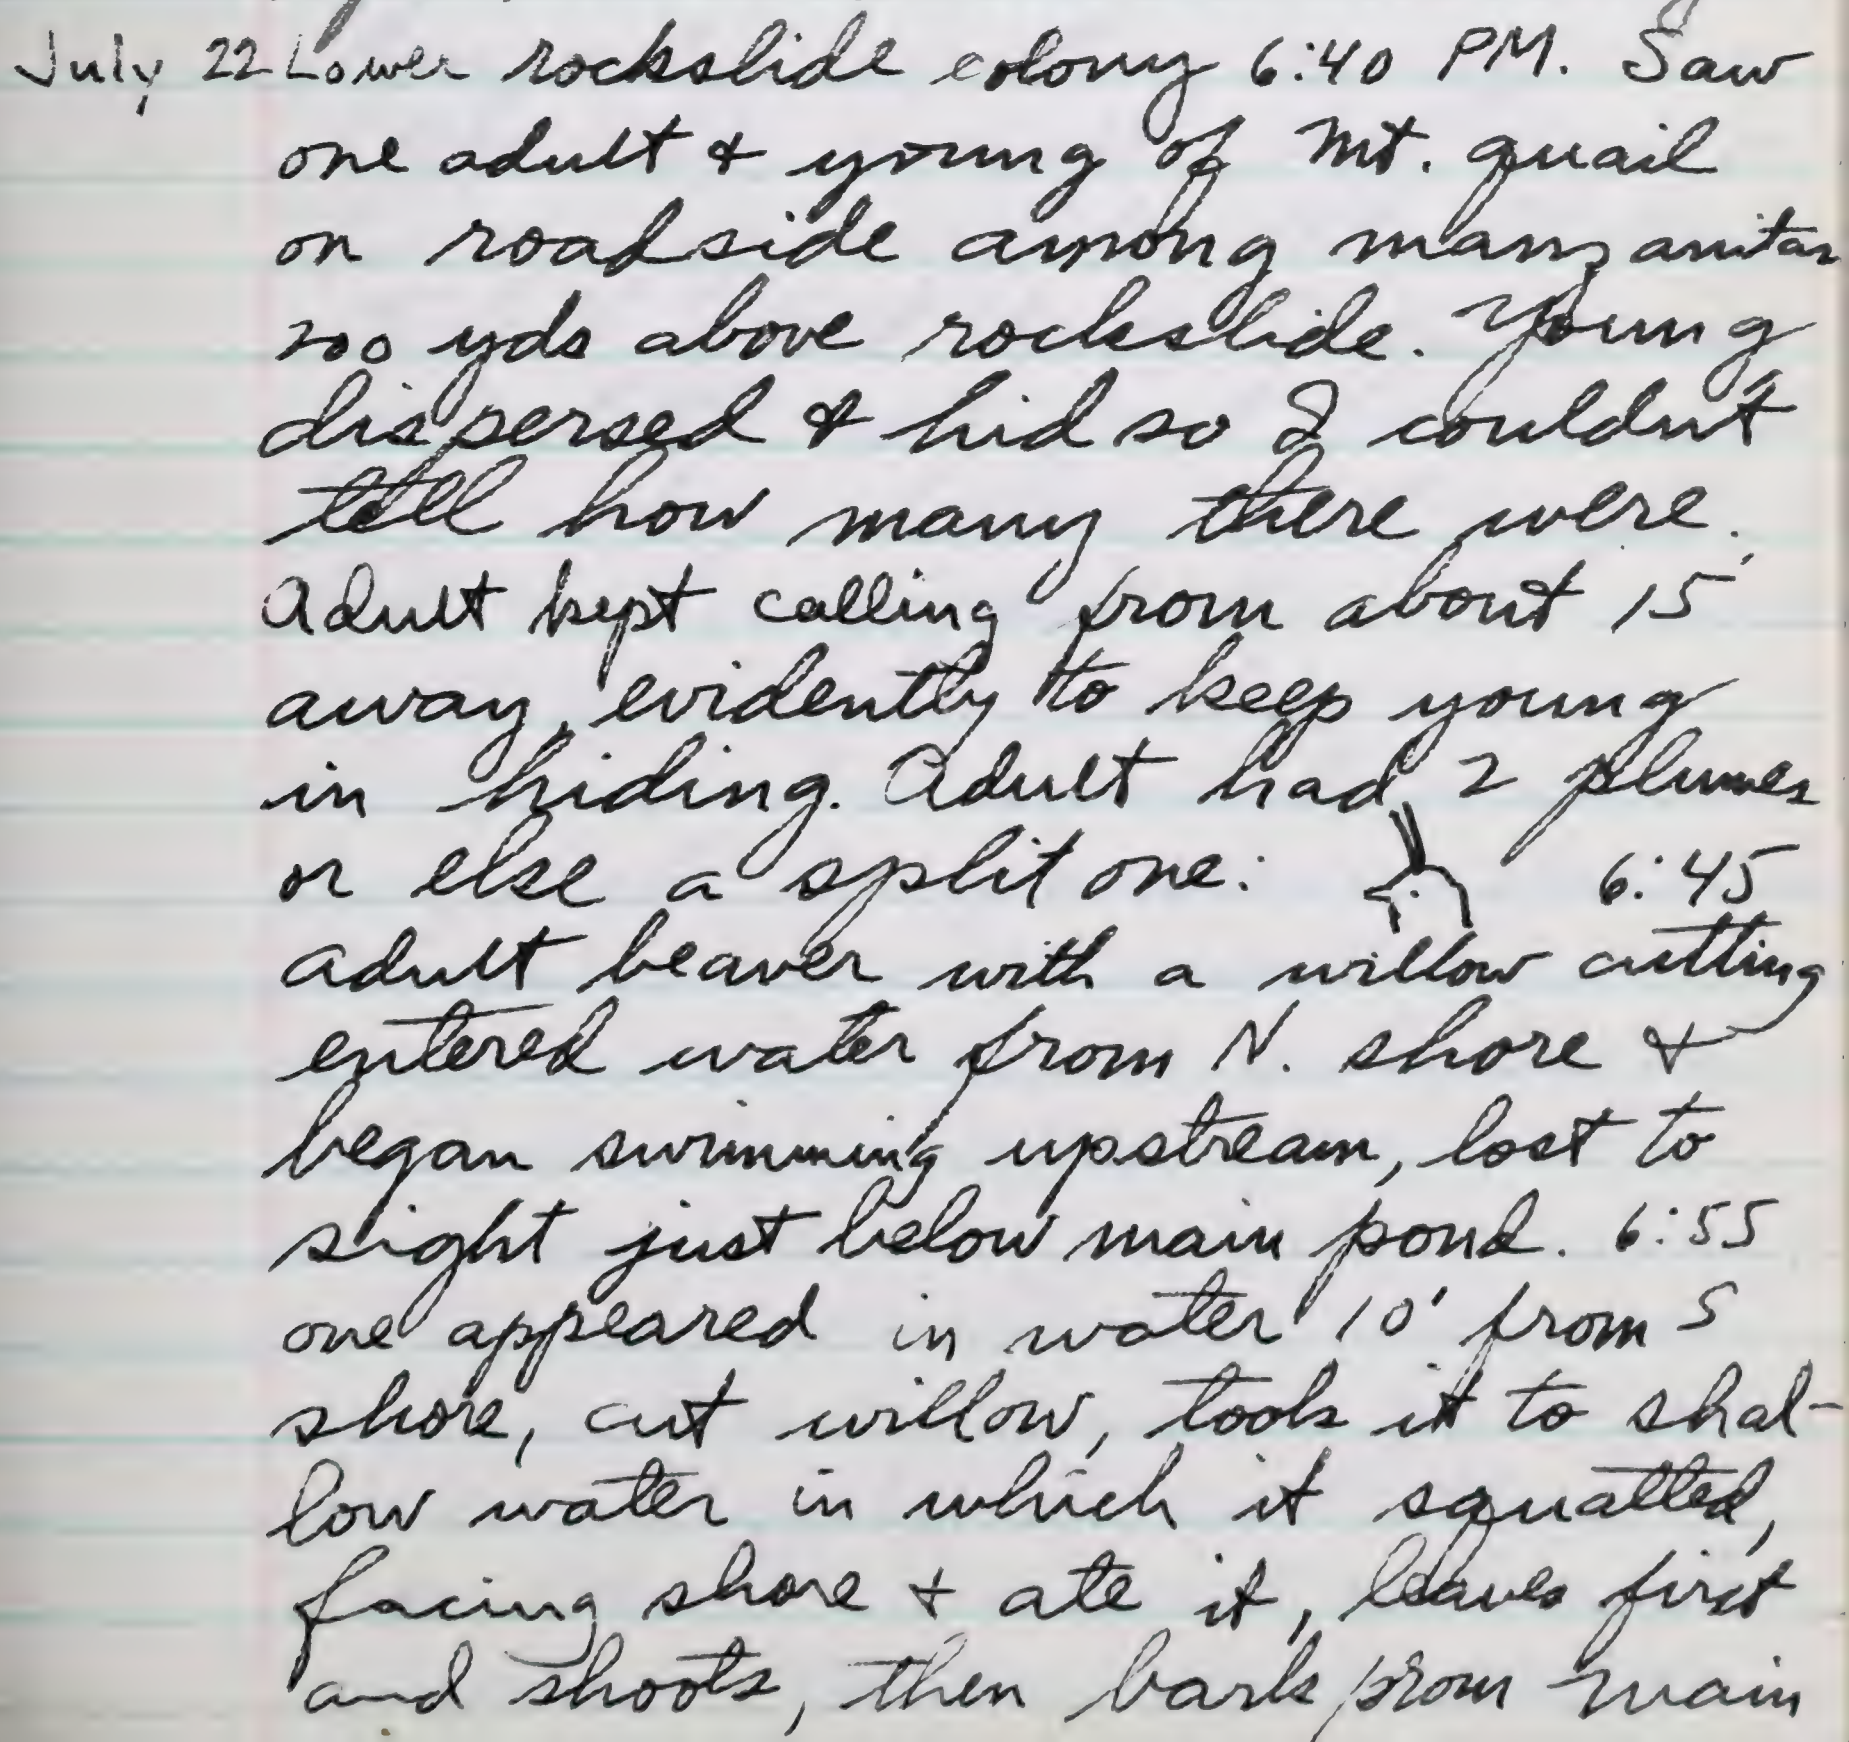 July 22 Lower rockslide colony 6:40 PM. Saw
one adult & young of Mt. quail
on roadside among manzanitas
200 yds above rockslide. Young
dispersed & hid so I couldn't
tell how many there were.
Adult kept calling from about 15'
away, evidently to keep young
in hiding. Adult had 2 plumes
or else a split one: 6:45
adult beaver with a willow cutting
entered water from N. shore &
began swimming upstream, lost to
sight just below main pond. 6:55
one appeared in water 10' from S
shore, cut willow, took it to shal-
low water in which it squatted,
facing shore & ate it, leaves first
and shoots, then bark from main